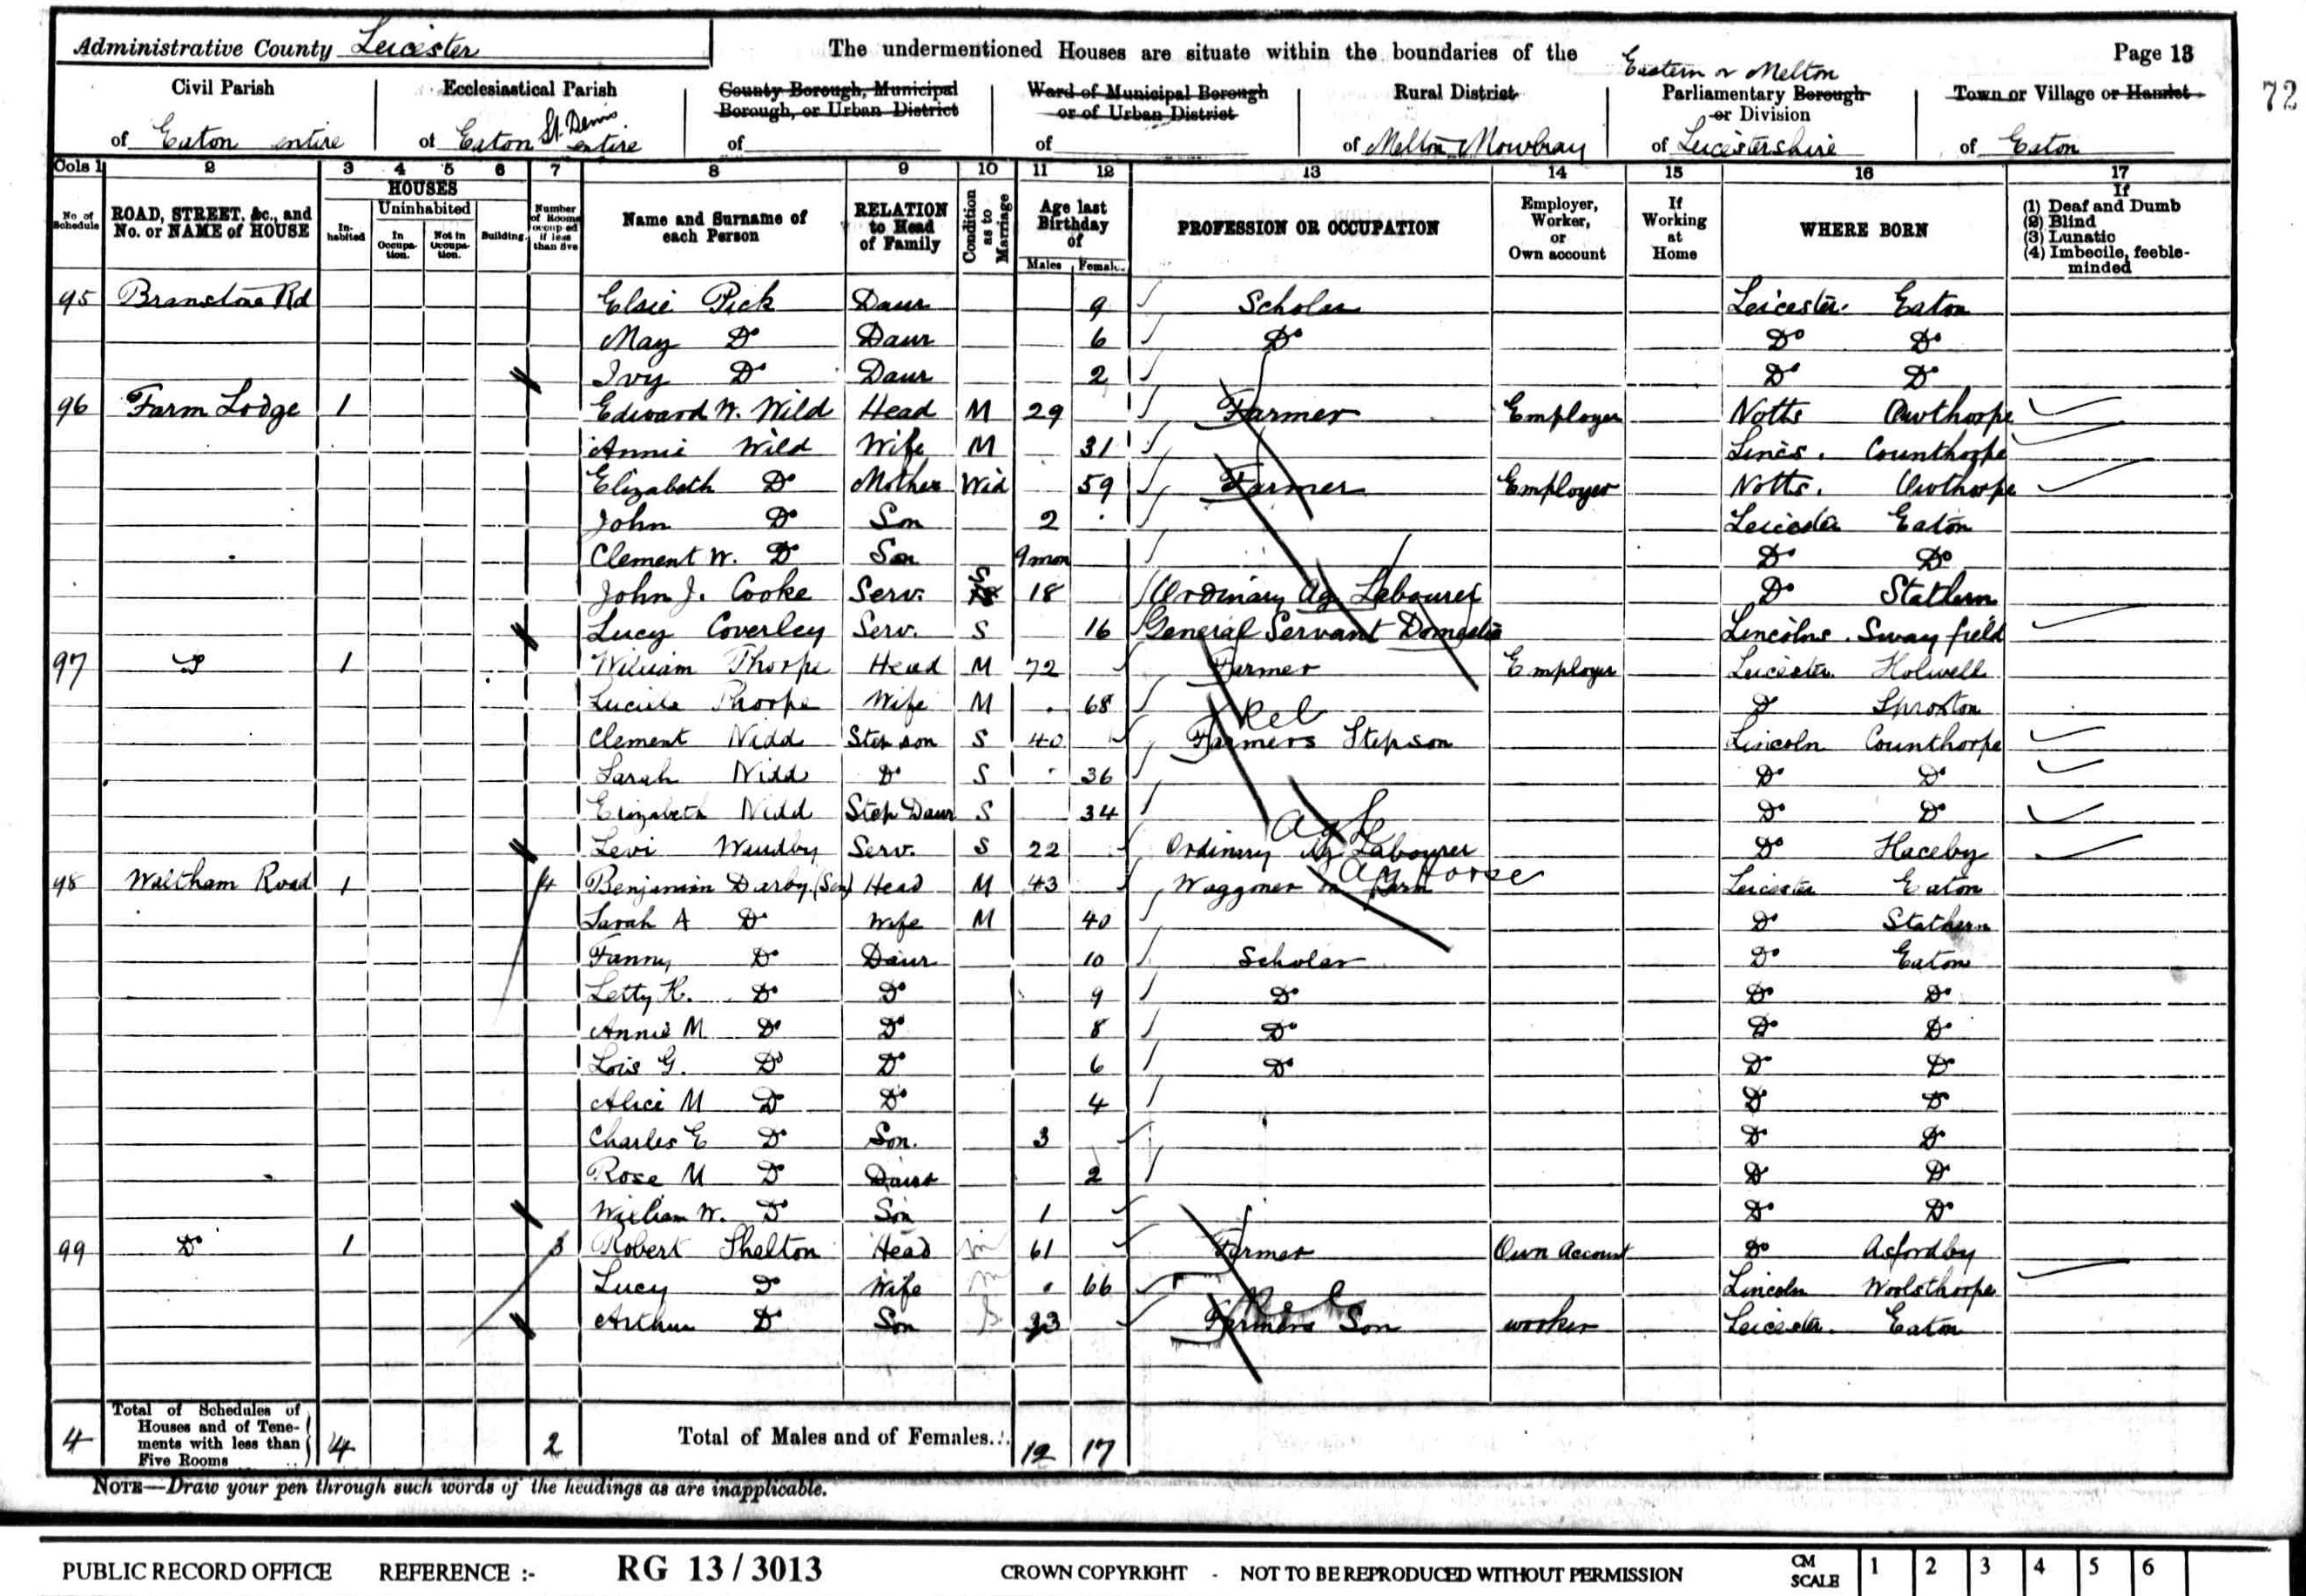 Administrative County Leicester
The undermentioned Houses are situate within the boundaries of the
Page 13
72
Civil Parish of Eaton entire
Ecclesiastical Parish of Eaton St. Denis entire
County Borough, Municipal Borough, or Urban District of
Ward of Municipal Borough or of Urban District of
Rural District of Melton Mowbray
Eastern or Melton Parliamentary Borough or Division of Leicestershire
Town or Village or Hamlet of Eaton
Cols 1 2 3 4 5 6 7 8 9 10 11 12 13 14 15 16 17
No of Schedule
ROAD, STREET, &c., and No. or NAME of HOUSE
HOUSES
Inhabited
Uninhabited
In Occupation.
Not in Occupation.
Building.
Number of Rooms occupied if less than five
Name and Surname of each Person
RELATION to Head of Family
Condition as to Marriage
Age last Birthday of
Males Females
PROFESSION OR OCCUPATION
Employer, Worker, or Own account
If Working at Home
WHERE BORN
If
(1) Deaf and Dumb
(2) Blind
(3) Lunatic
(4) Imbecile, feeble-minded
95 Branstone Rd Elsie Pick Daur 9 Scholar Leicester Eaton
May Do Daur 6 Do Do Do
Ivy Do Daur 2 Do Do
96 Farm Lodge 1 Edward W. Wild Head M 29 Farmer Employer Notts Owthorpe
Annie Wild Wife M 31 Lincs. Counthorpe
Elizabeth Do Mother Wid 59 Farmer Employer Notts. Owthorpe
John Do Son 2 Leicester Eaton
Clement W. Do Son 9 mon Do Do
John J. Cooke Serv. S 18 Ordinary Ag. Labourer Do Stathern
Lucy Coverley Serv. S 16 General Servant Domestic Lincolns. Swayfield
97 Do 1 William Thorpe Head M 72 Farmer Employer Leicester Holwell
Thorpe Wife M 68 Do Sproxton
Rel
Clement Nidd Step son S 40 Farmers Stepson Lincoln Counthorpe
Sarah Nidd Do S 36 Do Do
Elizabeth Nidd Step Daur S 34 Do Do
Ag L
Levi Serv. S 22 Ordinary Ag Labourer Do Haceby
Ag Horse
98 Waltham Road 1 4 Benjamin Darby (Sen) Head M 43 Waggoner on Farm Leicester Eaton
Sarah A Do Wife M 40 Do Stathern
Fanny Do Daur 10 Scholar Do Eaton
Letty K. Do Do 9 Do Do Do
Annie M Do Do 8 Do Do Do
Lois G. Do Do 6 Do Do Do
Alice M Do Do 4 Do Do
Charles E Do Son. 3 Do Do
Rose M Do Daur 2 Do Do
William W. Do Son 1 Do Do
99 Do 1 3 Robert Shelton Head m 61 Farmer Own Account Do Asfordby
Lucy Do Wife m 66 Lincoln Woolsthorpe
Rel
Arthur Do Son S 33 Farmers Son worker Leicester. Eaton
4 Total of Schedules of Houses and of Tenements with less than Five Rooms 4 2 Total of Males and of Females... 12 17
NOTE—Draw your pen through such words of the headings as are inapplicable.
PUBLIC RECORD OFFICE REFERENCE :- RG 13 / 3013 CROWN COPYRIGHT - NOT TO BE REPRODUCED WITHOUT PERMISSION CM SCALE 1 2 3 4 5 6